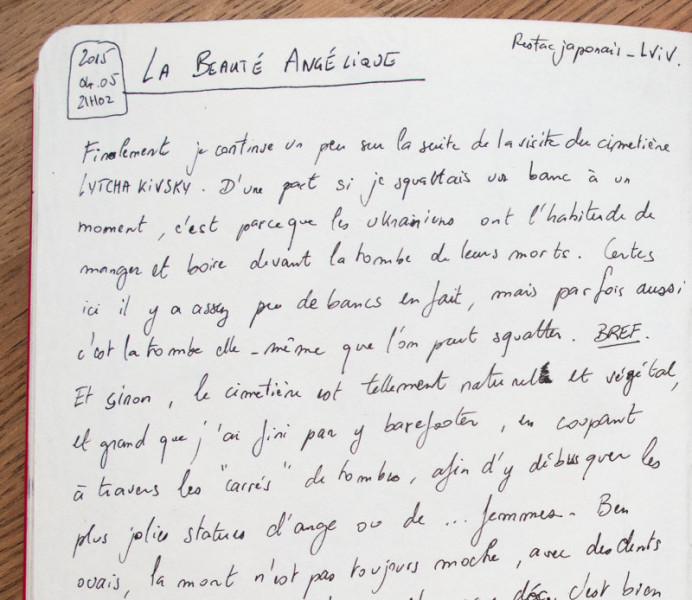 2015
04.05
21H02
LA BEAUTÉ ANGÉLIQUE
Restac japonais - LVIV.
Finalement je continue un peu sur la suite de la visite du cimetière
LYTCHAKIVSKY. D'une part si je squattais un banc à un
moment, c'est parce que les ukrainiens ont l'habitude de
manger et boire devant la tombe de leurs morts. Certes
ici il y a assez peu de bancs en fait, mais parfois aussi
c'est la tombe elle-même que l'on peut squatter. BREF.
Et sinon, le cimetière est tellement naturel et végétal,
et grand que j'ai fini par y barefooter, en coupant
à travers les "carrés" de tombes, afin d'y débusquer les
plus jolies statues d'ange ou de ... femmes. Ben
ouais, la mort n'est pas toujours moche, avec des dents
c'est bien